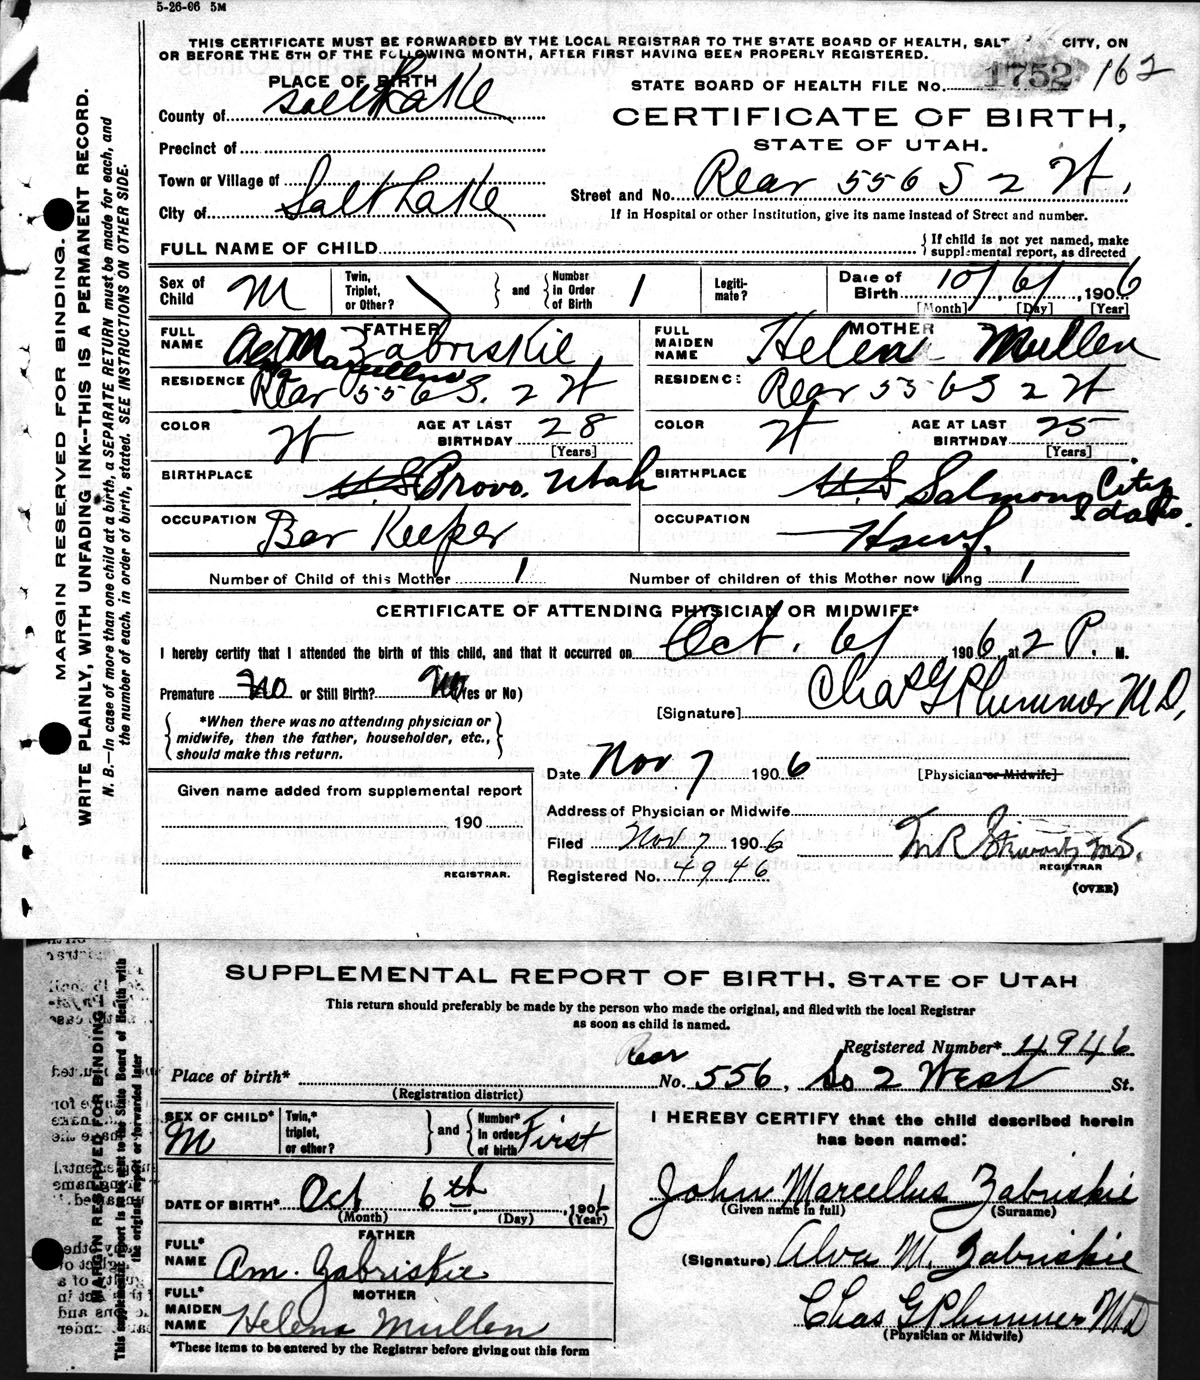 5-26-06 5M
THIS CERTIFICATE MUST BE FORWARDED BY THE LOCAL REGISTRAR TO THE STATE BOARD OF HEALTH, SALT CITY, ON
OR BEFORE THE 5TH OF THE FOLLOWING MONTH, AFTER FIRST HAVING BEEN PROPERLY REGISTERED.
PLACE OF BIRTH
STATE BOARD OF HEALTH FILE NO. 1752 162
County of Salt Lake
CERTIFICATE OF BIRTH,
STATE OF UTAH.
Precinct of
Town or Village of
Street and No. Rear 556 S 2 W.
City of Salt Lake
If in Hospital or other Institution, give its name instead of Street and number.
FULL NAME OF CHILD
If child is not yet named, make
supplemental report, as directed
Sex of Child M
Twin, Triplet, or Other? \ and Number in Order of Birth 1
Legitimate?
Date of Birth 10/ 6/ , 1906
[Month] [Day] [Year]
FATHER
FULL NAME M Zabriskie
Marcellus
MOTHER
FULL MAIDEN NAME Helena Mullen
RESIDENCE Rear 556 S. 2 W
RESIDENCE Rear 556 S 2 W
COLOR W AGE AT LAST BIRTHDAY 28 [Years]
COLOR W AGE AT LAST BIRTHDAY 25 [Years]
BIRTHPLACE U.S Provo. Utah
BIRTHPLACE U.S Salmon City Idaho.
OCCUPATION Bar Keeper
OCCUPATION Hswf.
Number of Child of this Mother 1 Number of children of this Mother now living 1
CERTIFICATE OF ATTENDING PHYSICIAN OR MIDWIFE*
I hereby certify that I attended the birth of this child, and that it occurred on Oct. 6/ 1906, at 2 P. M.
Premature No or Still Birth? No (Yes or No)
[Signature] Chas G Plummer M.D.
*When there was no attending physician or
midwife, then the father, householder, etc.,
should make this return.
Date Nov 7 1906 [Physician or Midwife]
Given name added from supplemental report
Address of Physician or Midwife
190
Filed Nov 7 1906 M R Stewart M.D.
REGISTRAR. REGISTRAR
Registered No. 4946
(OVER)
MARGIN RESERVED FOR BINDING.
WRITE PLAINLY, WITH UNFADING INK--THIS IS A PERMANENT RECORD.
N. B.—In case of more than one child at a birth, a SEPARATE RETURN must be made for each, and
the number of each, in order of birth, stated. SEE INSTRUCTIONS ON OTHER SIDE.
SUPPLEMENTAL REPORT OF BIRTH, STATE OF UTAH
This return should preferably be made by the person who made the original, and filed with the local Registrar
as soon as child is named.
Registered Number* 4946
Rear
Place of birth* No. 556, So 2 West St.
(Registration district)
SEX OF CHILD* M
Twin,* triplet, or other? and Number* in order of birth First
I HEREBY CERTIFY that the child described herein
has been named:
DATE OF BIRTH* Oct 6th, 1906
(Month) (Day) (Year)
John Marcellus Zabriskie
(Given name in full) (Surname)
FATHER
FULL* NAME A M. Zabriskie
(Signature) Alva M. Zabriskie
MOTHER
FULL* MAIDEN NAME Helena Mullen
Chas G Plummer MD
(Physician or Midwife)
*These items to be entered by the Registrar before giving out this form
MARGIN RESERVED FOR BINDING
This supplemental report is to be sent to the State Board of Health with
the original report or forwarded later